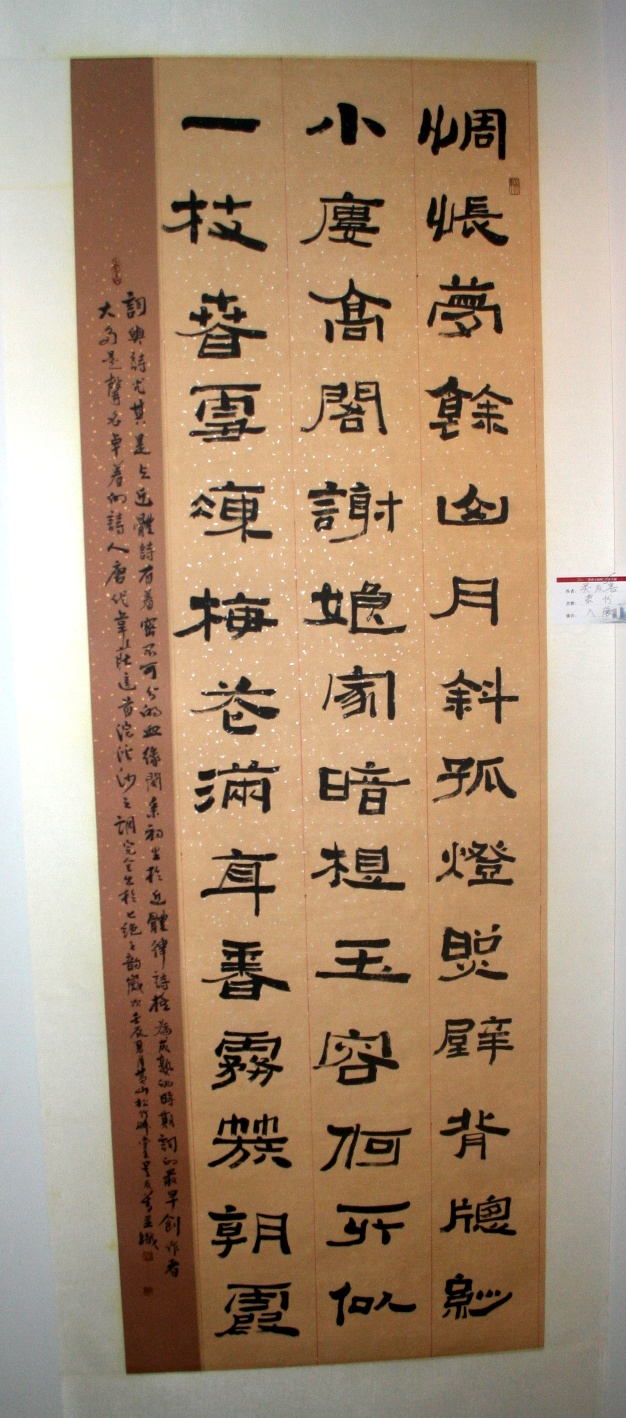 惆悵夢餘山月斜孤燈照壁背牕紗
小廔高閣謝娘家暗想玉容何所似
一枝春雪凍梅花滿身香霧簇朝霞
詞與詩尤其是與近體詩有着密不可分的血緣關係初出於近體律詩極為成熟的時期詞的最早創作者
大多是聲名卓著的詩人唐代韋莊這首浣溪沙之調完全出於七絕之韻歲次壬辰